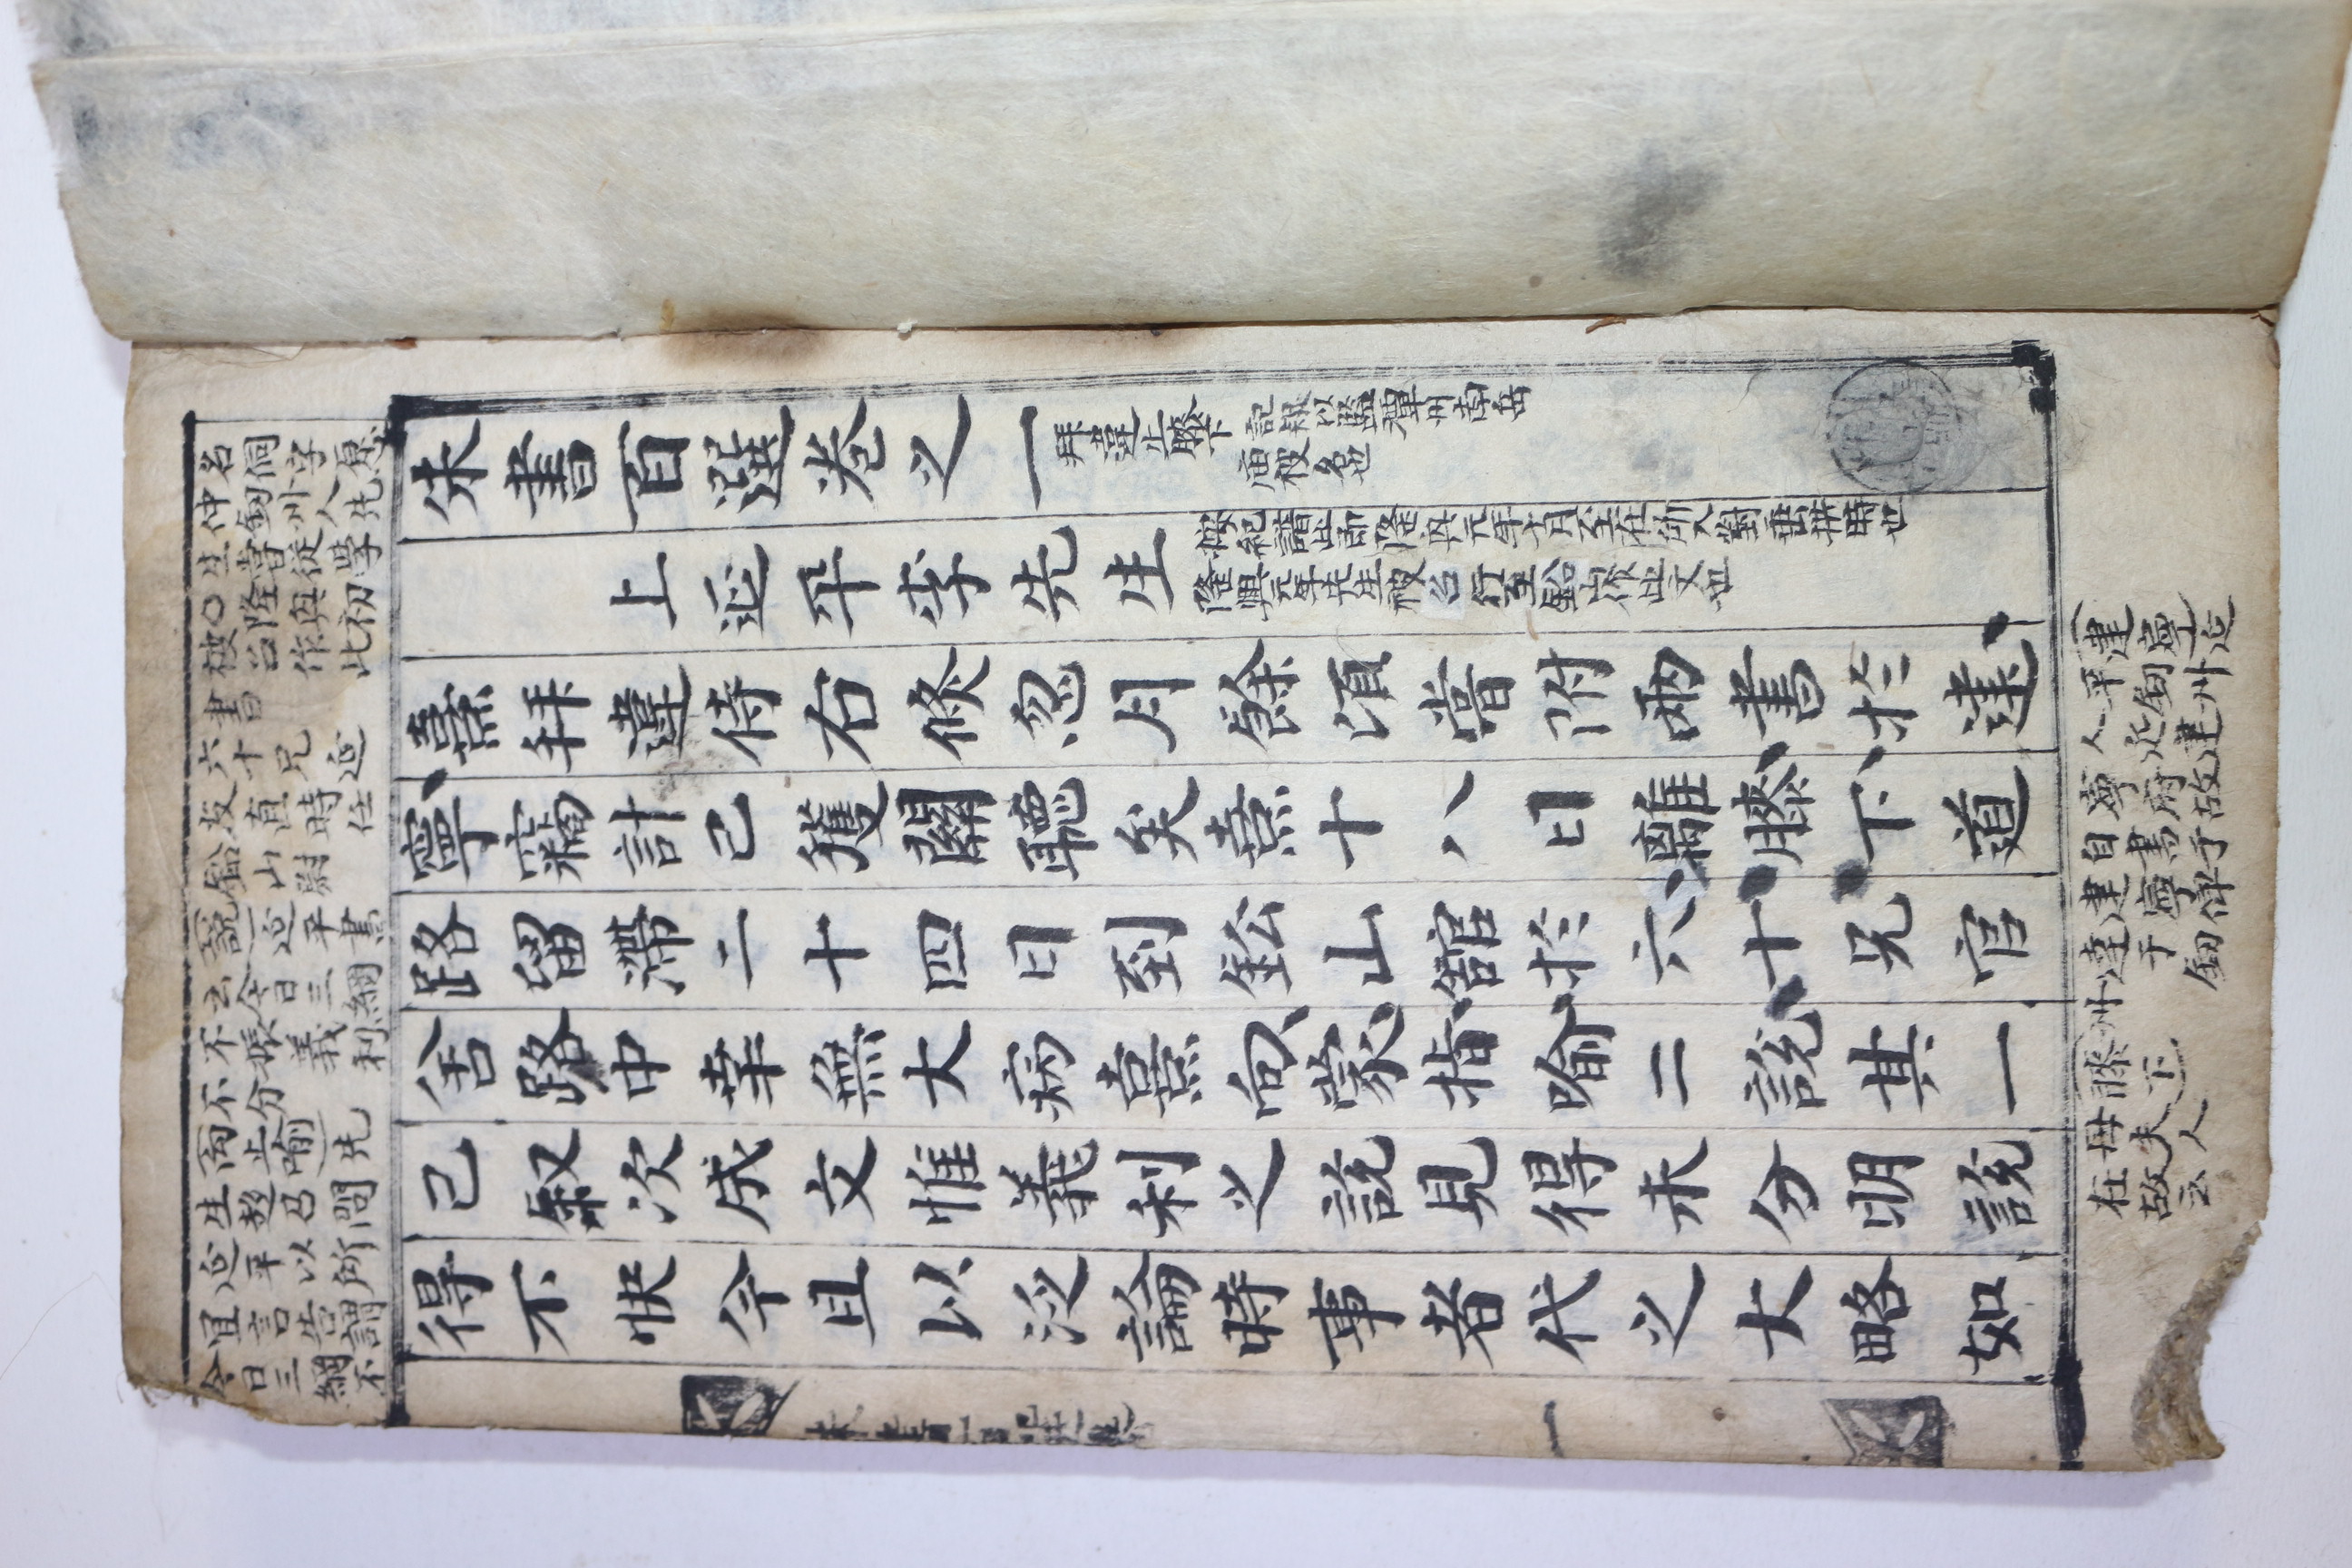 名侗字愿
仲釰州人先
生嘗從學
○隆兴初
被召作此
書
六十兄 延
友直時任
鉛山尉
(說)延平書
云今日三綱
不振義利
不分
(两止喻)先
生赴召問
延平以所
宜言告謂
今日三綱不
朱書百選卷之一
拜違止膝下
記疑以監潭州南岳
庙被名也
上延平李先生
按紀譜此即隆兴元年十月至在所入對垂拱時也
隆興元年先生被召行至鉛山作此文也
熹拜違侍右倏忽月餘頃嘗附兩書於建
寧竊計已獲關聽矣熹十八日離膝下道
路留滯二十四日到鈆山舘於六十兄官
舍路中幸無大病熹向蒙指喻二說其一
已叙次成文惟義利之說見得未分明說
得不快今且以泛論時事者代之大略如
一
(建寧)延
平釰州
人延建
寧府故
自書于
建寧俾
達于釰
州
(膝下)
母夫人
在故云